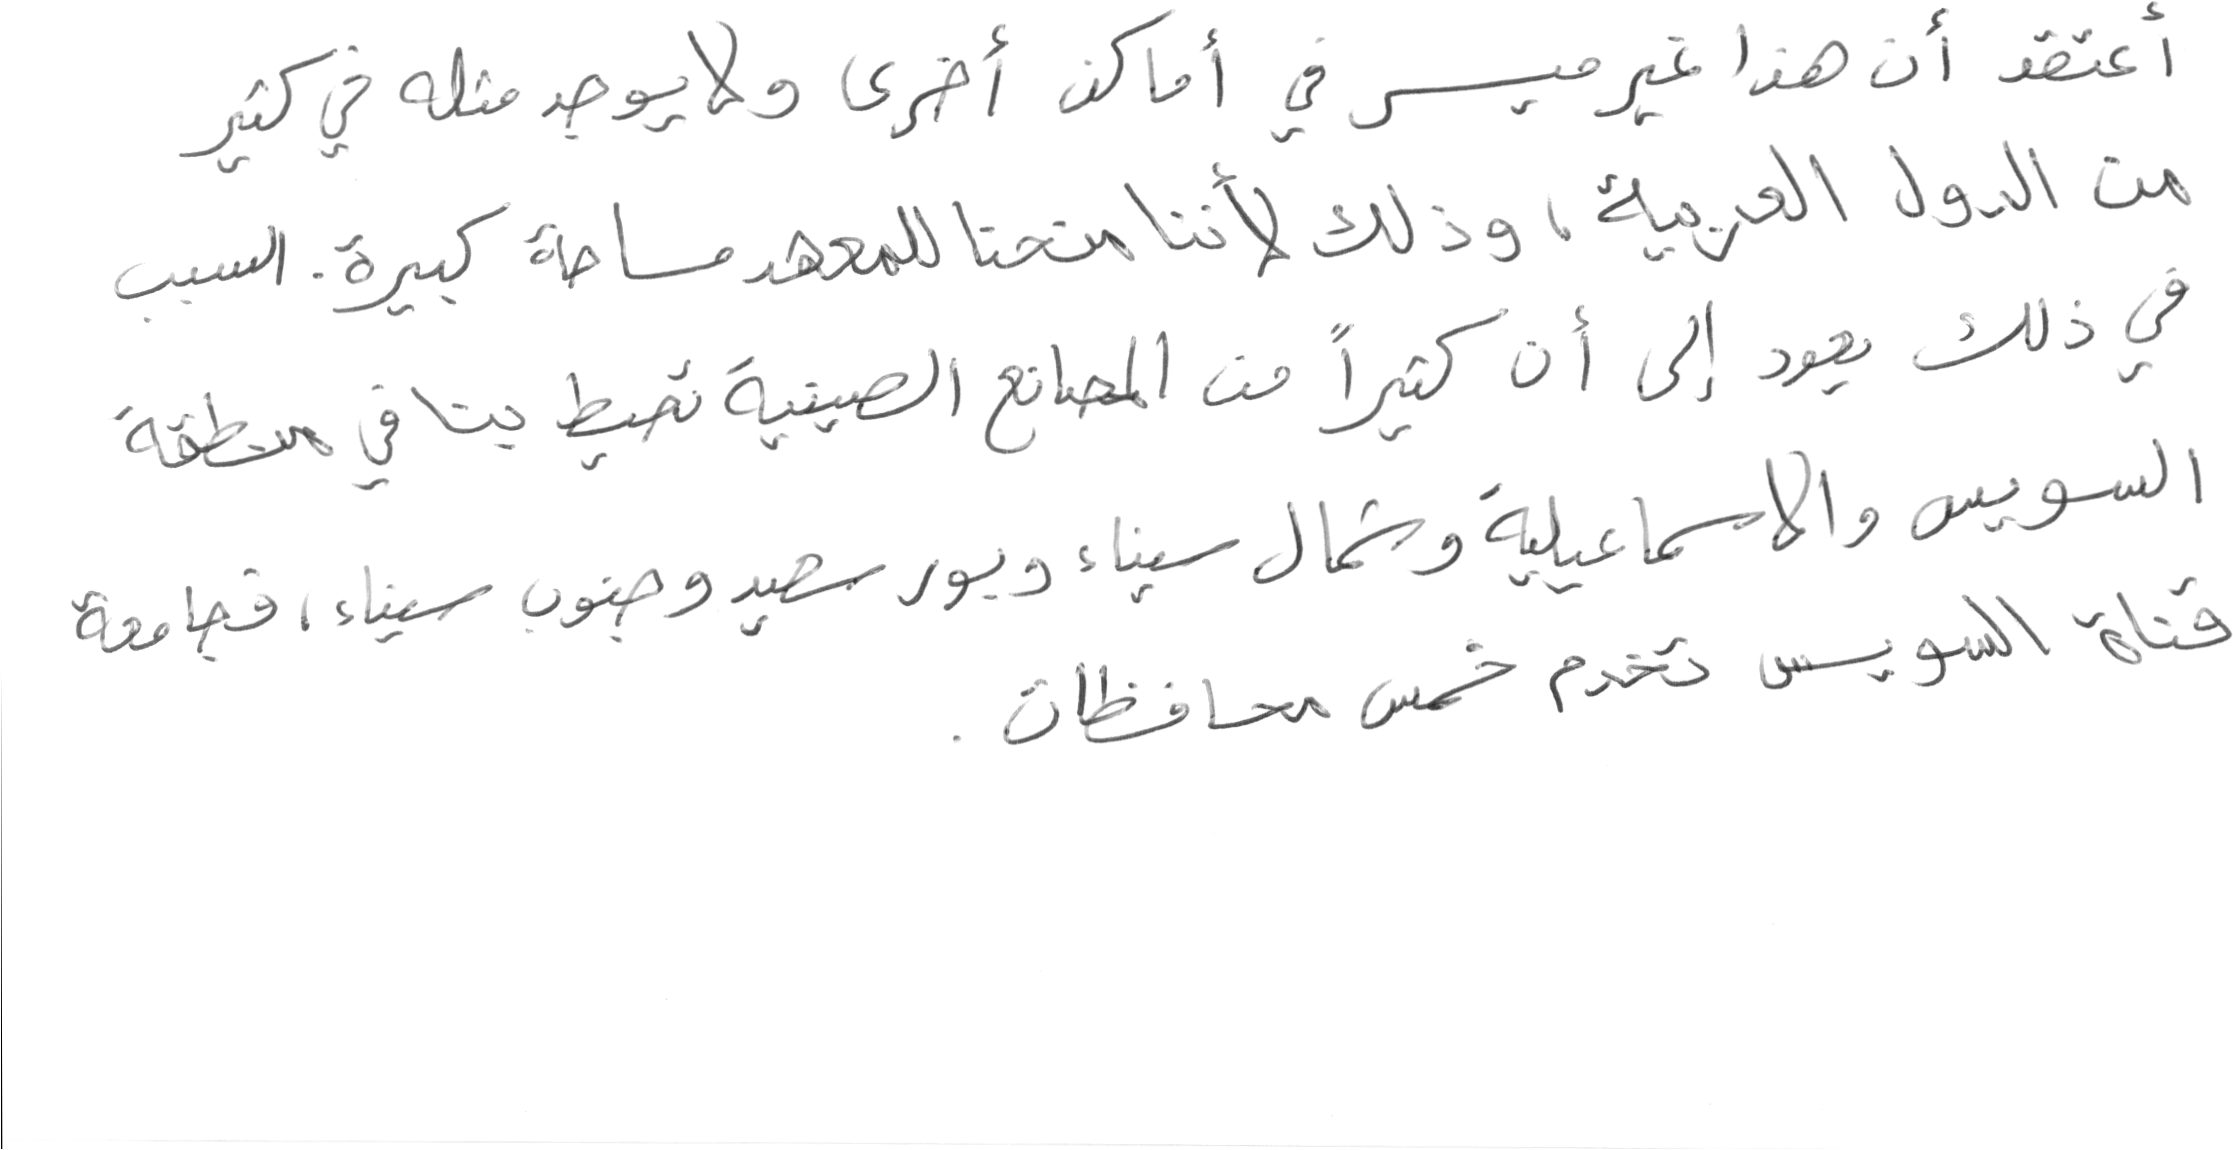 أعتقد أن هذا غير ميسر في أماكن أخرى ولا يوجد مثله في كثير
من الدول العربية، وذلك لأننا منحنا للمعهد مساحة كبيرة. السبب
في ذلك يعود إلى أن كثيراً من المصانع الصينية تحيط بنا في منطقة
السويس والاسماعيلية وشمال سيناء وبور سعيد وجنوب سيناء، فجامعة
قناة السويس تخدم خمس محافظات.